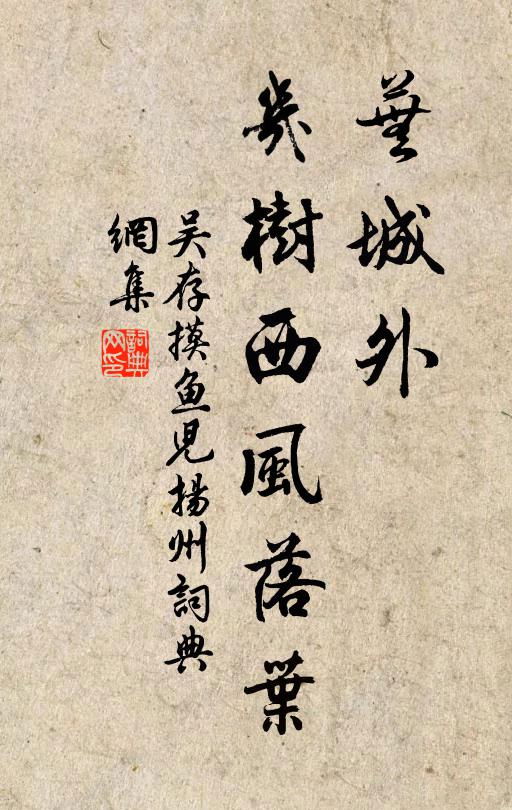 蕪城外
幾樹西風落葉
吴存摸魚兒揚州詞典
網集
詞典網印